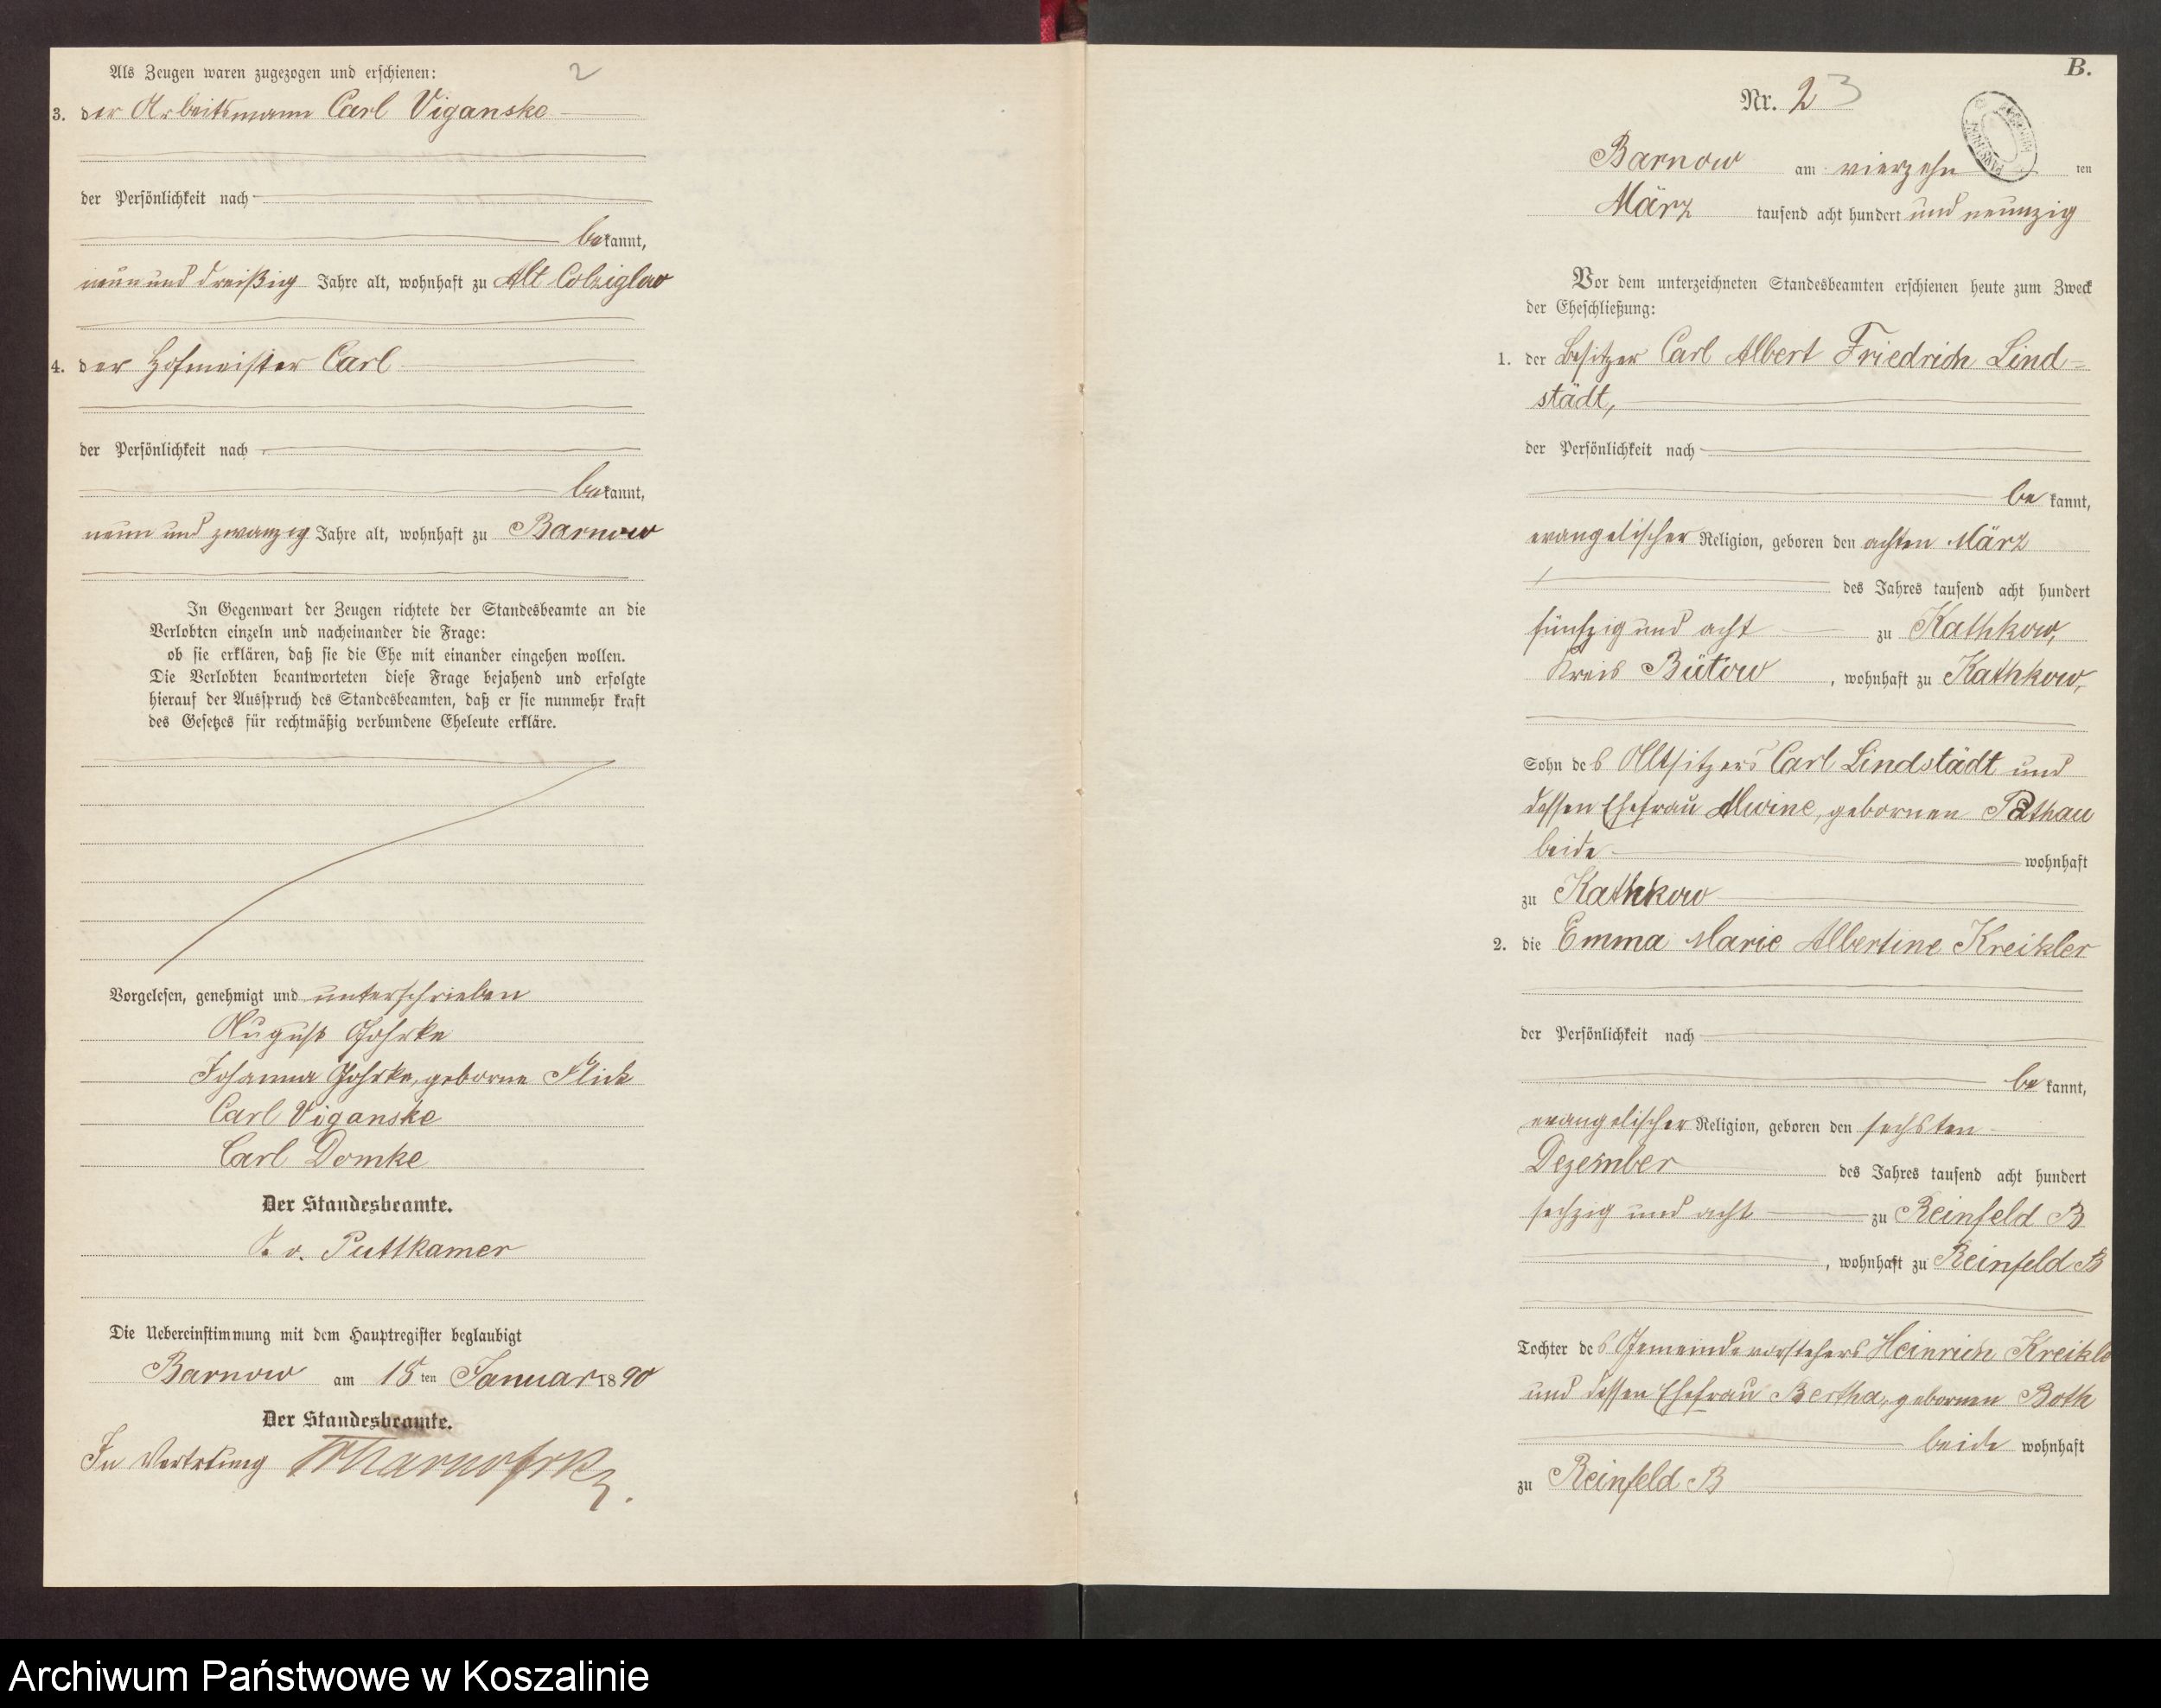 Als Zeugen waren zugezogen und erschienen:
2
3. der Arbeitsmann Carl Viganske
der Persönlichkeit nach
bekannt,
neun und dreißig Jahre alt, wohnhaft zu Alt Colziglow
4. der Hofmeister Carl
der Persönlichkeit nach
bekannt,
neun und zwanzig Jahre alt, wohnhaft zu Barnow
In Gegenwart der Zeugen richtete der Standesbeamte an die
Verlobten einzeln und nacheinander die Frage:
ob sie erklären, daß sie die Ehe mit einander eingehen wollen.
Die Verlobten beantworteten diese Frage bejahend und erfolgte
hierauf der Ausspruch des Standesbeamten, daß er sie nunmehr kraft
des Gesetzes für rechtmäßig verbundene Eheleute erkläre.
Vorgelesen, genehmigt und unterschrieben
August Gohrke
Johanna Gohrke, geborne Flick
Carl Viganske
Carl Domke
Der Standesbeamte.
v. Puttkamer
Die Uebereinstimmung mit dem Hauptregister beglaubigt
Barnow am 15ten Januar 1890
Der Standesbeamte.
In Vertretung
B.
Nr. 2 3
Barnow am vierzehn ten
März tausend acht hundert und neunzig
Vor dem unterzeichneten Standesbeamten erschienen heute zum Zweck
der Eheschließung:
1. der Besitzer Carl Albert Friedrich Lind=
städt,
der Persönlichkeit nach
be kannt,
evangelischer Religion, geboren den achten März
des Jahres tausend acht hundert
fünfzig und acht zu Kathkow,
Kreis Bütow, wohnhaft zu Kathkow,
Sohn des Altsitzers Carl Lindstädt und
dessen Ehefrau Alwine, gebornen Pathau
beide wohnhaft
zu Kathkow
2. die Emma Marie Albertine Kreikler
der Persönlichkeit nach
be kannt,
evangelischer Religion, geboren den sechsten
Dezember des Jahres tausend acht hundert
sechzig und acht zu Reinfeld B
, wohnhaft zu Reinfeld B
Tochter des Gemeindevorstehers Heinrich Kreikler
und dessen Ehefrau Bertha, gebornen Both
beide wohnhaft
zu Reinfeld B
Archiwum Państwowe w Koszalinie